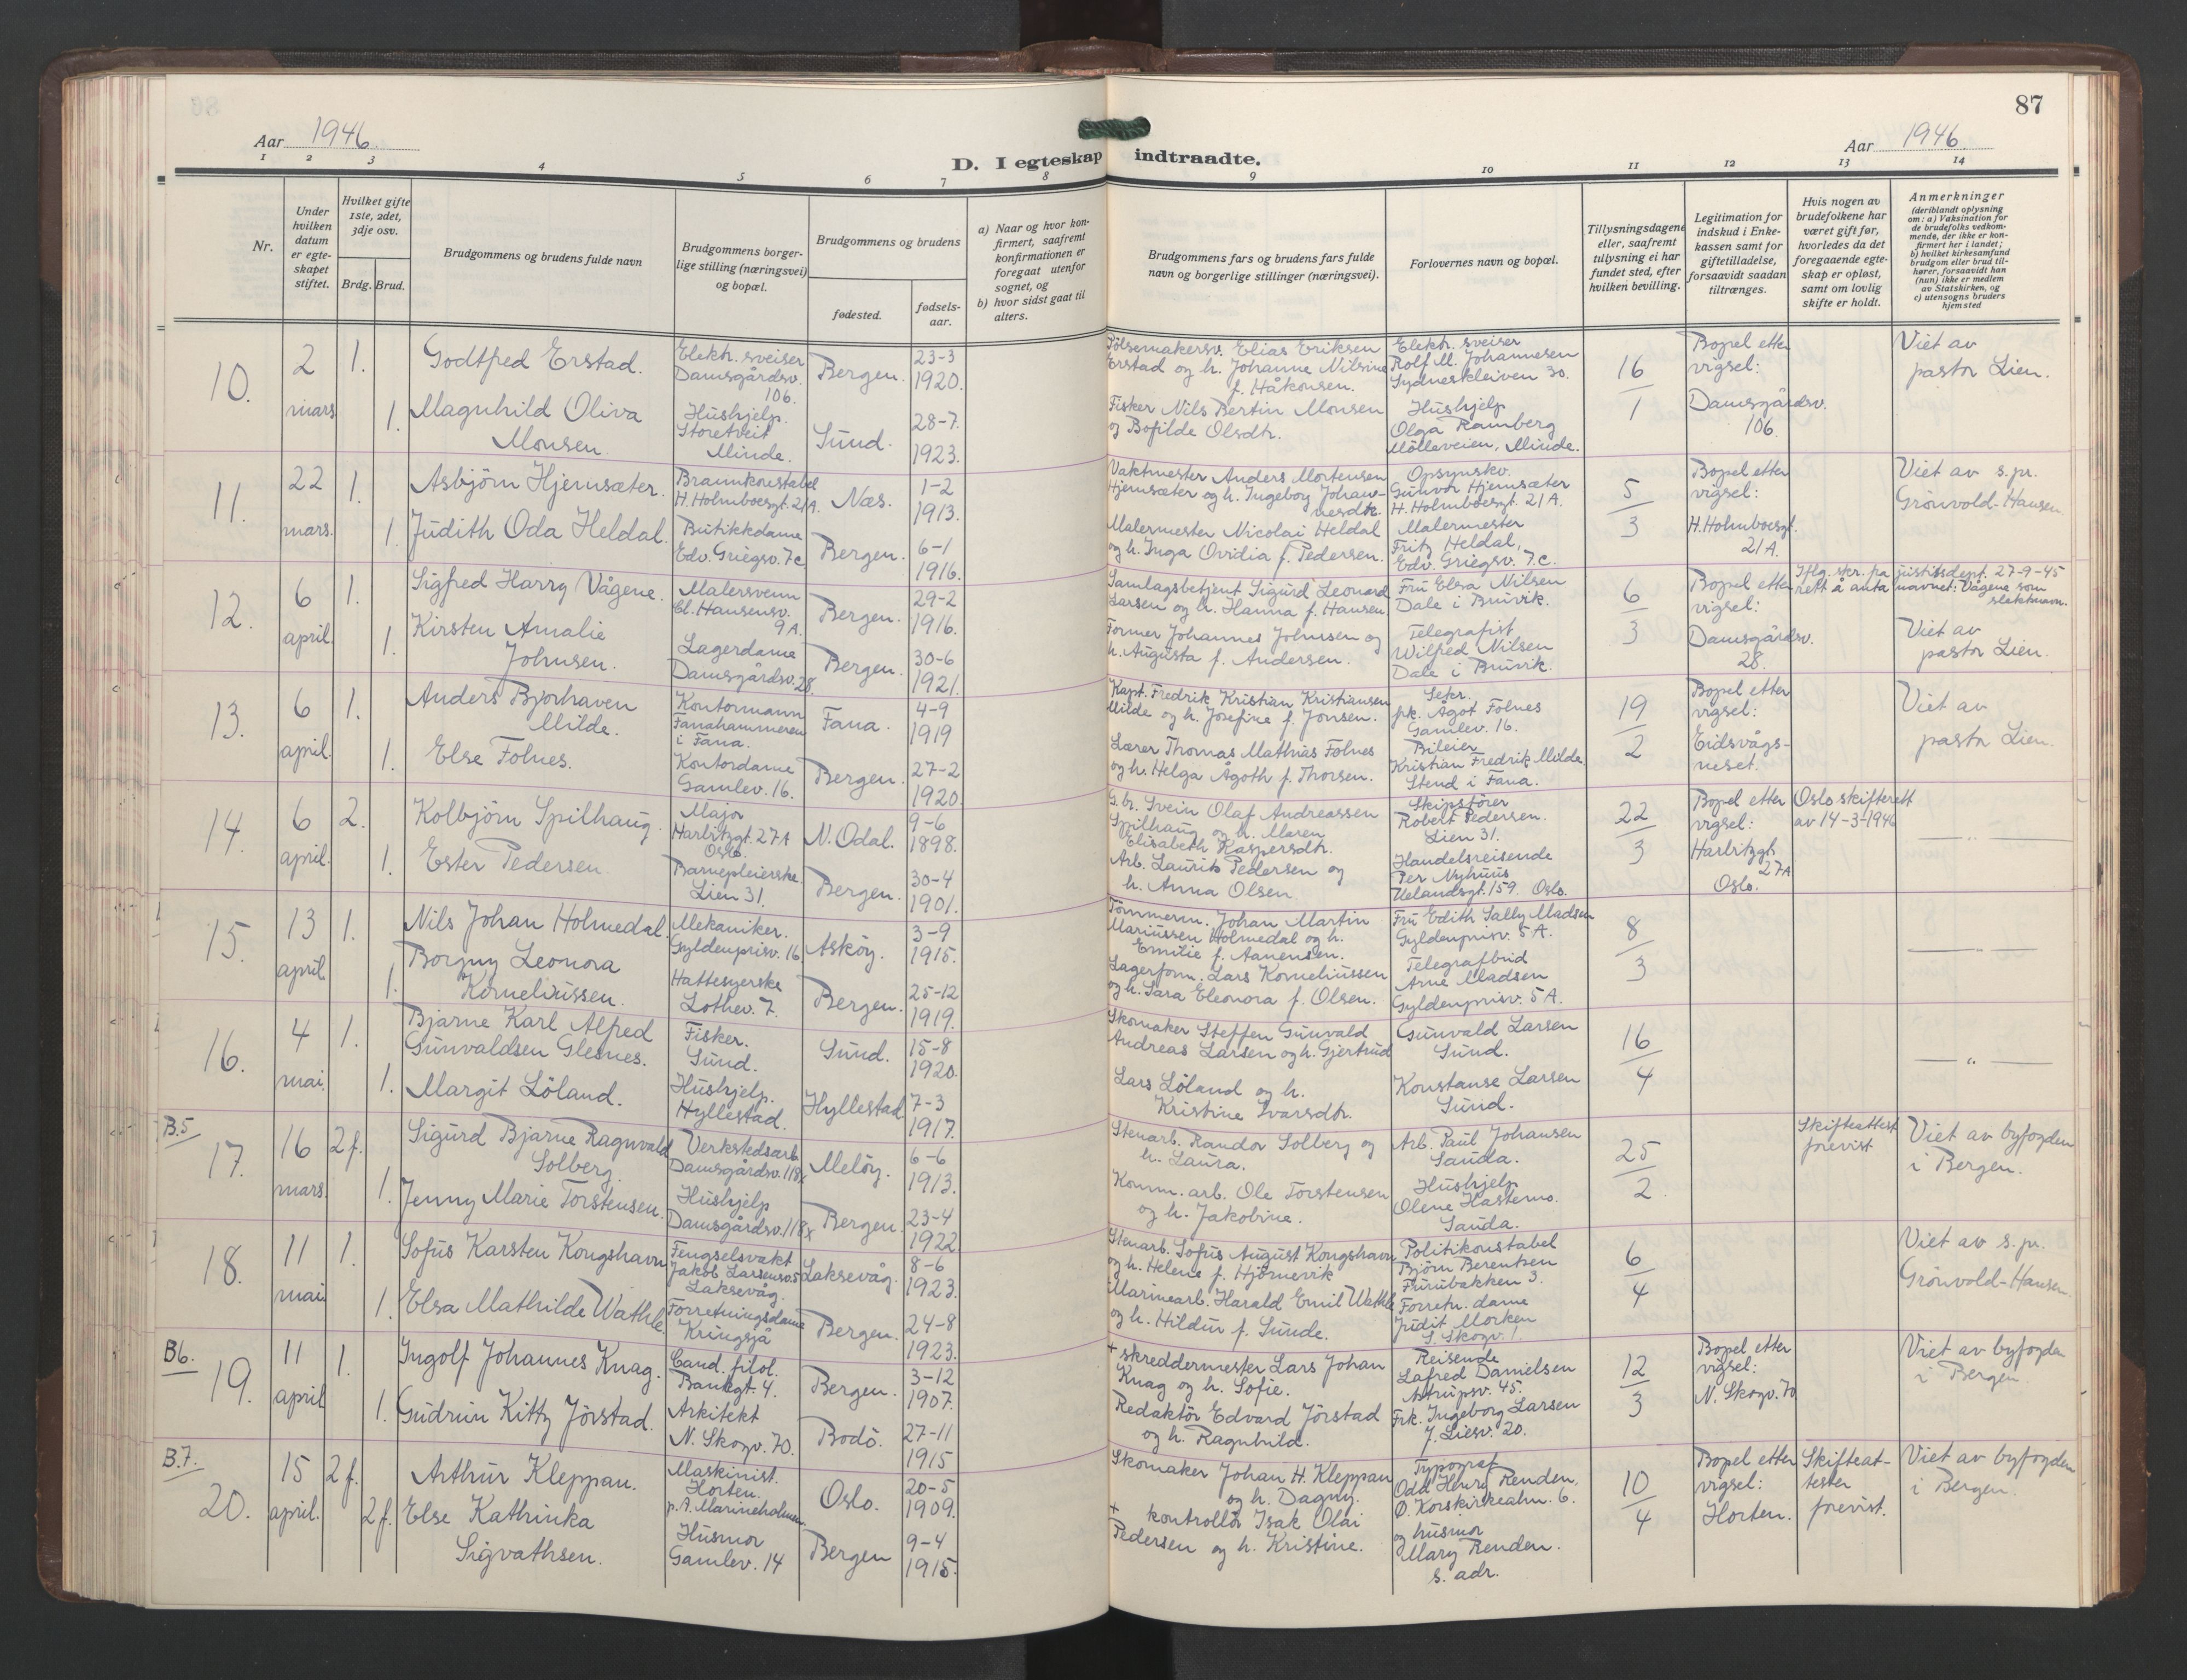 87
Aar 1946.
Aar 1946
D. I egteskap indtraadte.
1 2 3 4 5 6 7 8 9 10 11 12 13 14
Nr.
Under hvilken datum er egteskapet stiftet.
Hvilket gifte 1ste, 2det, 3dje osv.
Brdg. Brud.
Brudgommens og brudens fulde navn
Brudgommens borgerlige stilling (næringsvei) og bopæl.
Brudgommens og brudens
fødested.
fødselsaar.
a) Naar og hvor konfirmert, saafremt konfirmationen er foregaat utenfor sognet, og
b) hvor sidst gaat til alters.
Brudgommens fars og brudens fars fulde navn og borgerlige stillinger (næringsvei).
Forlovernes navn og bopæl.
Tillysningsdagene eller, saafremt tillysning ei har fundet sted, efter hvilken bevilling.
Legitimation for indskud i Enkekassen samt for giftetilladelse, forsaavidt saadan tiltrænges.
Hvis nogen av brudefolkene har været gift før, hvorledes da det foregaaende egteskap er opløst, samt om lovlig skifte er holdt.
Anmerkninger
(deriblandt oplysning om: a) Vaksination for de brudefolks vedkommende, der ikke er konfirmert her i landet; b) hvilket kirkesamfund brudgom eller brud tilhører, forsaavidt han (hun) ikke er medlem av Statskirken, og c) utensogns bruders hjemsted
10.
2 mars
1.
Godtfred Erstad.
Elektr. sveiser
Damsgårdsv. 106.
Bergen.
23-3
1920.
1.
Magnhild Oliva
Monsen.
Hushjelp.
Storetveit
Minde.
Sund.
28-7.
1923.
Pølsemakersv. Elias Eriksen
Erstad og h. Johanne Nilsine
f. Håkonsen.
Fisker Nils Bertin Monsen
og Bofilde Olsdtr.
Elektr. sveiser
Rolf M. Johannesen
Sydneskleiven 30.
Hushjelp
Olga Ramberg
Mölleveien, Minde.
16
1
Bopel etter
vigsel:
Damsgårdsv.
106.
Viet av
pastor Lien.
11.
22 mars.
1.
Asbjörn Hjemsæter.
Brannkonstabel
H. Holmboesgt. 21A.
Næs.
1-2
1913.
1.
Judith Oda Heldal.
Butikkdame
Edv. Griegsv. 7c
Bergen.
6-1
1916.
Vaktmester Anders Mortensen
Hjemsæter og h. Ingeborg Johannesdtr.
Malermester Nicolai Heldal
og h. Inga Ovidia f. Pedersen.
Opsynskv.
Gunvor Hjemsæter
H. Holmboesgt. 21A.
Malermester
Fritz Heldal,
Edv. Griegsv. 7.c.
5
3
Bopel etter
vigsel:
H. Holmboesgt.
21A.
Viet av s.pr.
Grönvold-Hansen.
12.
6 april.
1.
Sigfred Harry Vågene.
Malersvenn
Cl. Hansensv.
9A.
Bergen.
29-2
1916.
1.
Kirsten Amalie
Johnsen.
Lagerdame
Damsgårdsv. 28.
Bergen.
30-6
1921.
Samlagsbetjent Sigurd Leonard
Larsen og h. Hanna f. Hansen
Former Johannes Johnsen og
h. Augusta f. Andersen.
Fru Elsa Nilsen
Dale i Bruvik.
Telegrafist
Wilfred Nilsen
Dale i Bruvik.
6
3
Bopel etter
vigsel:
Damsgårdsv.
28.
Iflg. skr. fra justisdept. 27-9-45
rett å anta navnet: Vågene som
slektnavn.
Viet av
pastor Lien.
13.
6 april.
1.
Anders Bjorhaven
Milde.
Kontormann
Fanahammeren
i Fana.
Fana.
4-9
1919
1.
Else Folnes.
Kontordame
Gamlev. 16.
Bergen.
27-2
1920.
Kapt. Fredrik Kristian Kristiansen
Milde og h. Josefine f. Jonsen.
Lærer Thomas Mathias Folnes
og h. Helga Ågoth f. Thorsen.
frk. Ågot Folnes
Gamlev. 16.
Bileier
Kristian Fredrik Milde.
Stend i Fana.
19
2
Bopel etter
vigsel:
Eidsvågsneset.
Viet av
pastor Lien.
14.
6 april.
2.
Kolbjörn Spilhaug.
Major
Harbitzgt. 27A
Oslo.
N. Odal.
9-6
1898.
1.
Ester Pedersen.
Barnepleierske.
Lien 31.
Bergen.
30-4
1901.
G.br. Svein Olaf Andreassen
Spilhaug og h. Maren
Elisabeth Kaspersdtr.
Arb. Laurits Pedersen og
h. Anna Olsen.
Skipsförer
Robert Pedersen.
Lien 31.
Handelsreisende
Per Nyhuus
Uelandsgt. 159. Oslo.
22
3
Bopel etter
vigsel:
Harbitzgt.
27A
Oslo.
Oslo skifterett
av 14-3-1946
— „ —
15.
13 april.
1.
Nils Johan Holmedal.
Mekaniker.
Gyldenprisv. 16.
Asköy.
3-9
1915.
1.
Borgny Leonora
Korneliussen.
Hattesyerske
Lothev. 7.
Bergen.
25-12
1919.
Tömmerm. Johan Martin
Mariussen Holmedal og h.
Emilie f. Aanensen.
Lagerform. Lars Korneliussen
og h. Sara Eleonora f. Olsen.
Fru Edith Sally Madsen
Gyldenprisv. 5A.
Telegrafbud
Arne Madsen
Gyldenprisv. 5A.
8
3
— „ —
16.
4 mai.
1.
Bjarne Karl Alfred
Gunvaldsen Glesnes.
Fisker.
Sund.
Sund.
15-8
1920.
1.
Margit Löland.
Hushjelp.
Hyllestad.
Hyllestad
7-3
1917.
Skomaker Steffen Gunvald
Andreas Larsen og h. Gjertrud
Lars Löland og h.
Kristine Ivarsdtr.
Gunvald Larsen
Sund.
Konstanse Larsen
Sund.
16
4
— „ —
B.5
17.
16 mars.
2 f.
Sigurd Bjarne Ragnvald
Solberg.
Verkstedsarb.
Damsgårdsv. 118x
Melöy.
6-6
1913.
1.
Jenny Marie Torstensen.
Hushjelp
Damsgårdsv. 118x
Bergen.
23-4
1922
Stenarb. Randor Solberg og
h. Laura.
Komm. arb. Ole Torstensen
og h. Jakobine.
Arb. Paul Johansen
Sauda.
Hushjelp
Olene Hastemo.
Sauda.
25
2.
Skifteattest
frevist
Viet av byfogden
i Bergen.
18.
11 mai.
1.
Sofus Karsten Kongshavn
Fengselsvakt
Jakob Larsensv. 5
Laksevåg.
Laksevåg.
8-6
1923.
1.
Elsa Mathilde Wathle.
Forretningsdame
Kringsjå
Bergen.
24-8
1923.
Stenarb. Sofus August Kongshavn
og h. Helene f. Hjörnevik
Marinearb. Harald Emil Wathle
og h. Hildur f. Sunde.
Politikonstabel
Björn Berentsen
Furubakken 3.
Forretn. dame
Judit Morken
S. Skogv. 1.
6
4
Viet av s.pr.
Grönvold-Hansen.
B6.
19.
11 april
1.
Ingolf Johannes Knag.
Cand. filol.
Bankgt. 4.
Bergen.
3-12
1907.
1.
Gudrun Kitty Jörstad.
Arkitekt
N. Skogv. 70.
Bodö.
27-11
1915
+ skreddermester Lars Johan
Knag og h. Sofie.
Redaktör Edvard Jörstad
og h. Ragnhild.
Reisende
Lafred Danielsen
Astrupsv. 45.
Frk. Ingeborg Larsen
J. Liesv. 20.
12
3
Bopel etter
vigsel:
N. Skogv. 70
Viet av byfogden
i Bergen.
B.7.
20.
15 april.
2 f.
Arthur Kleppan.
Maskinist.
Horten.
p.A. Marineholmen.
Oslo.
20-5
1909.
2 f.
Else Kathinka
Sigvathsen.
Husmor
Gamlev. 14
Bergen
9-4
1915.
Skomaker Johan H. Kleppan
og h. Dagny.
+ kontrollör Isak Olai
Pedersen og h. Kristine.
Typograf
Odd Henry Renden.
Ø. Korskirkealm. 6.
og husmor
Mary Renden.
s. adr.
10
4
Bopel etter
vigsel:
Horten.
Skifteattester
frevist.
Viet av byfogden
i Bergen.